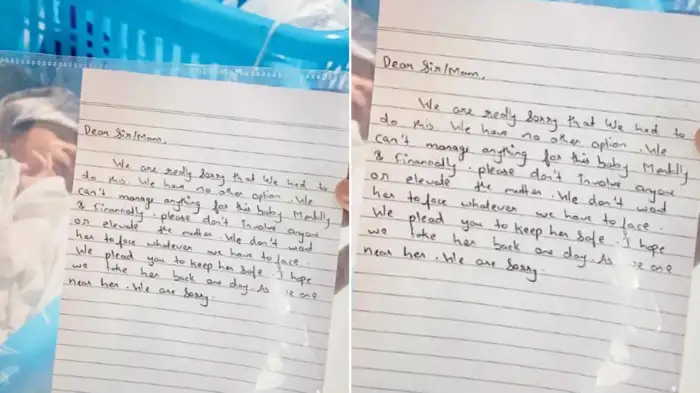 Dear Sir/Mam,
We are really sorry that We had to
do this. We have no other option. We
can't manage anything for this baby Mentally
& Financially. please don't Involve anyone
or elevate the matter. We don't want
her to face whatever we have to face.
We plead you to keep her safe. I hope
we take her back one day. As we are
near her. We are sorry.
Dear Sir/Mam,
We are really sorry that We had to
do this. We have no other option. We
can't manage anything for this baby Mentally
& Financially. please don't Involve anyone
or elevate the matter. We don't want
her to face whatever we have to face.
We plead you to keep her safe. I hope
we take her back one day. As we are
near her. We are sorry.